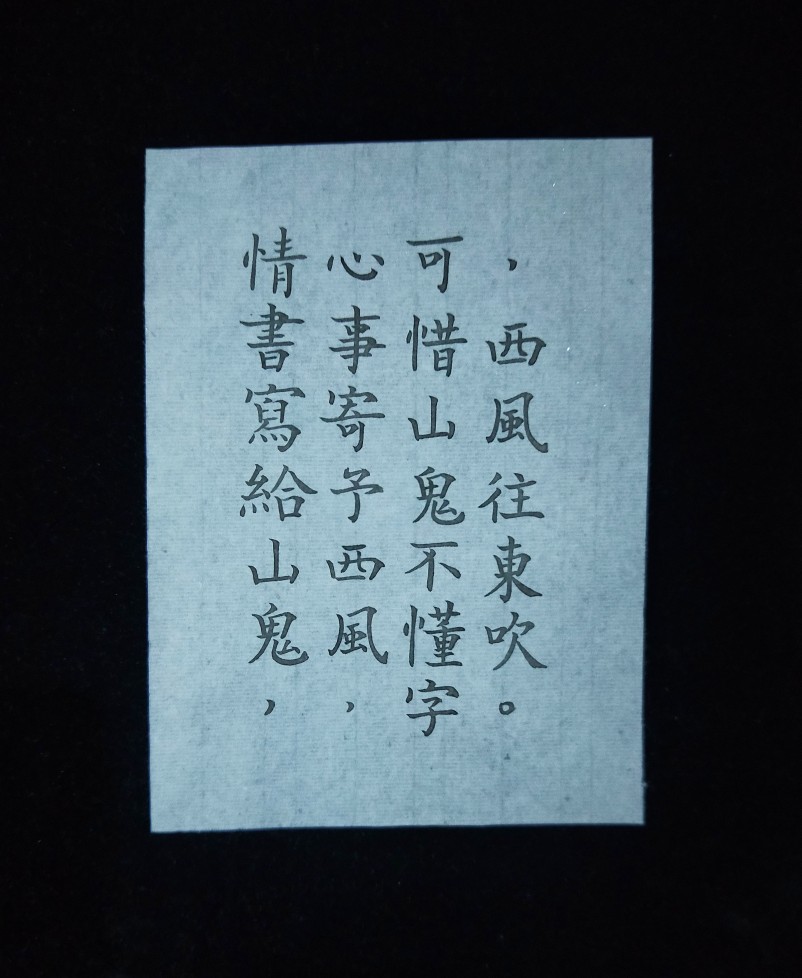 情書寫給山鬼，
心事寄予西風，
可惜山鬼不懂字
，西風往東吹。